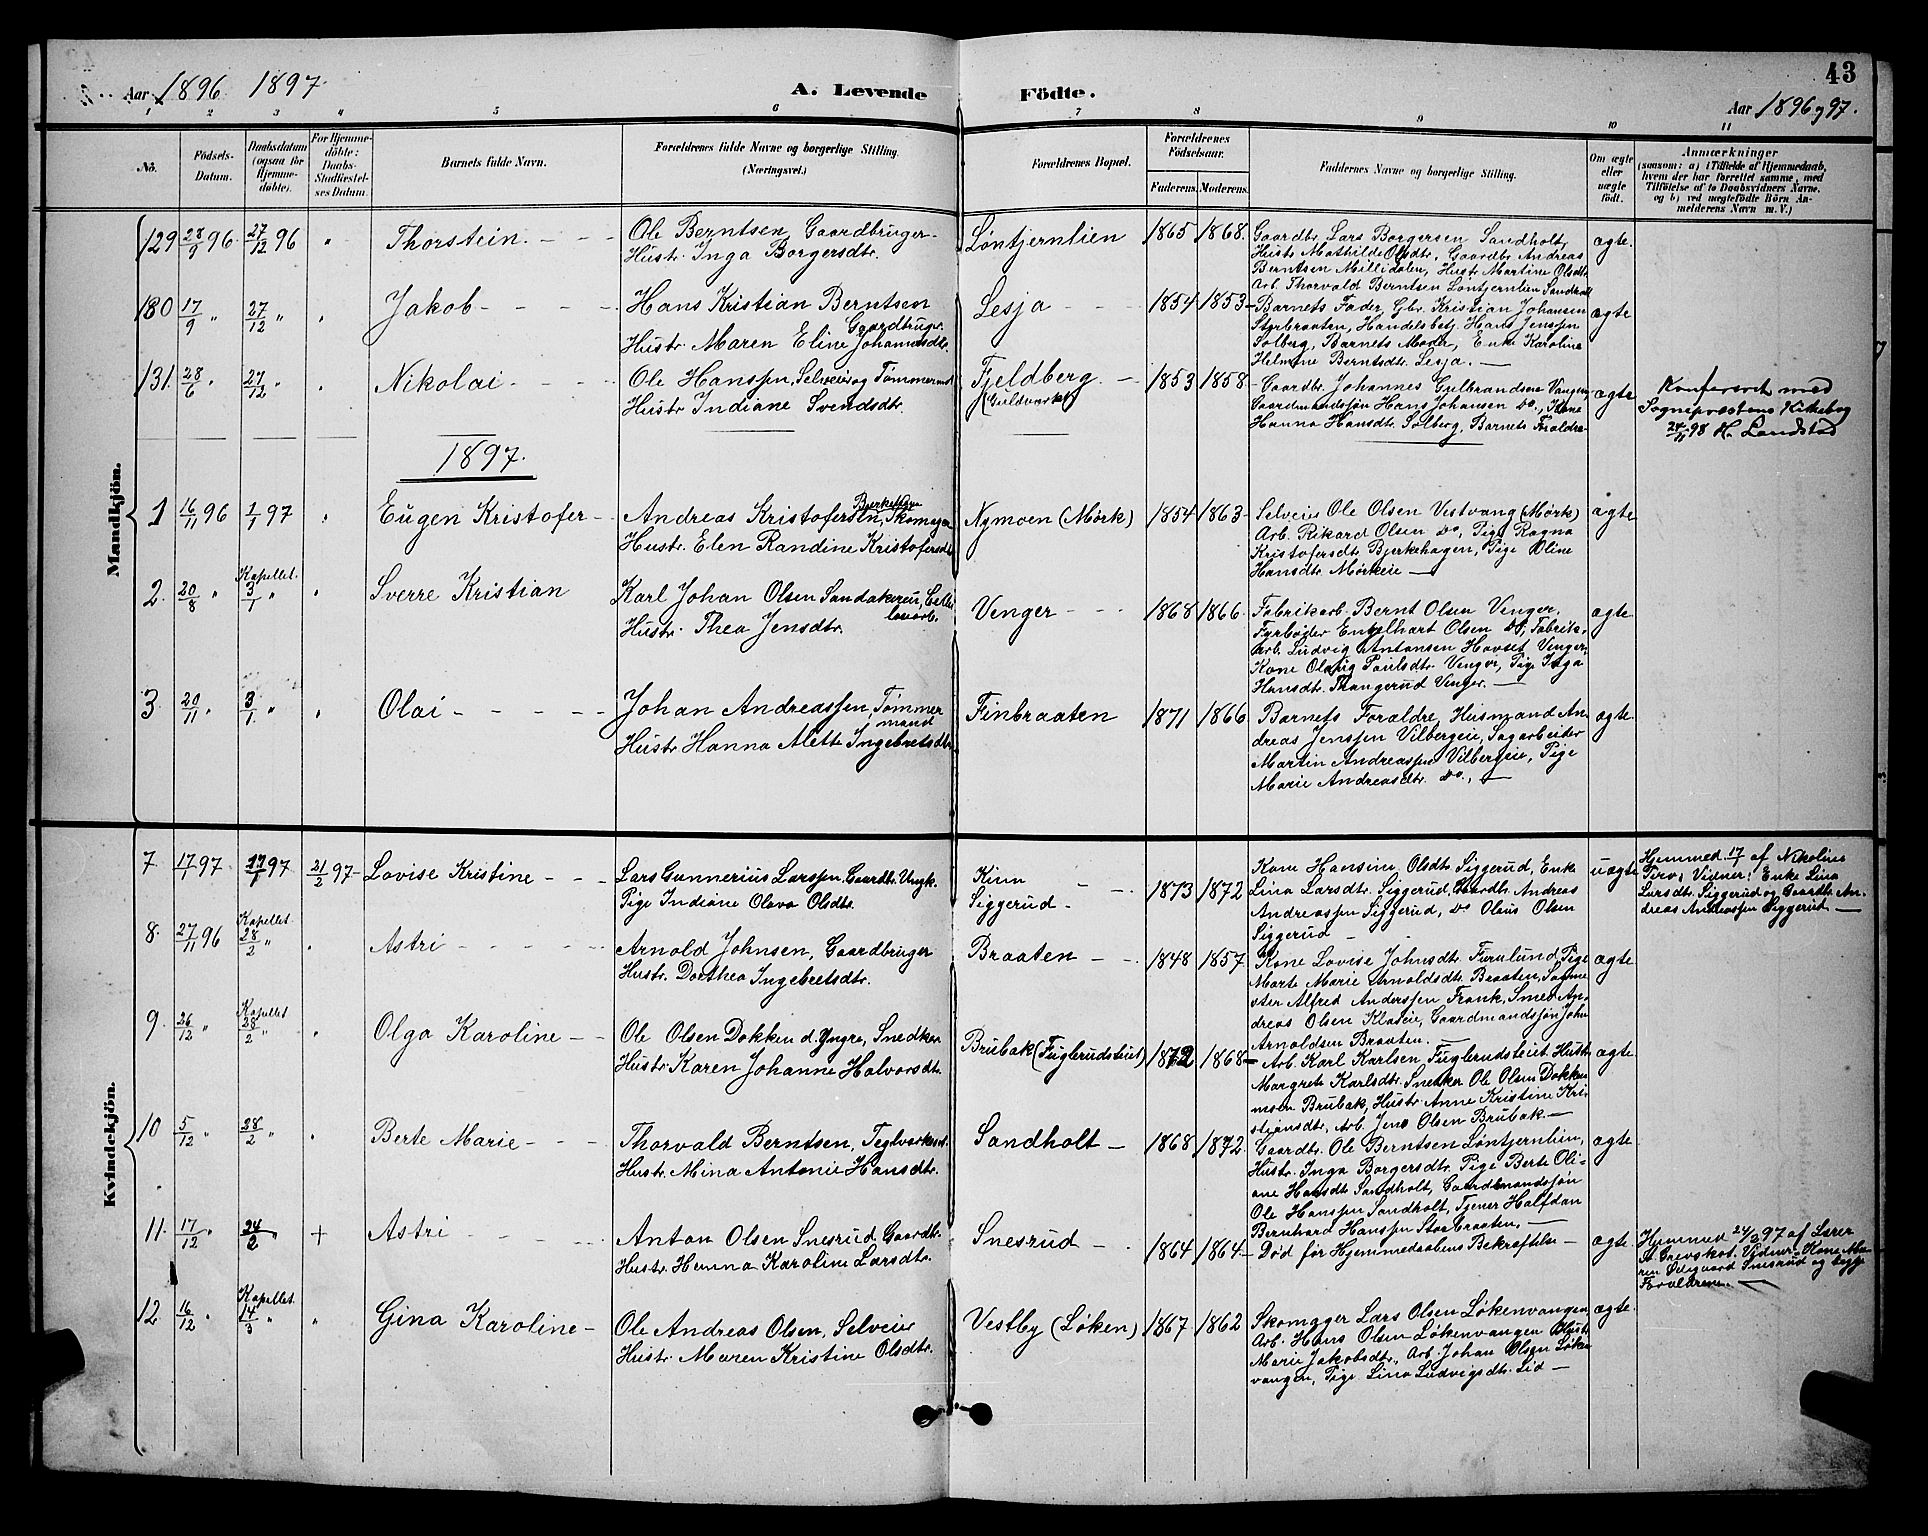 Aar 1896 1897
A. Levende
Födte.
43
Aar 1896 og 97.
1 2 3 4 5 6 7 8 9 10 11
No.
Födsels-Datum.
Daabsdatum (ogsaa for Hjemmedöbte).
For Hjemmedöbte: Daabs-Stadfæstelses Datum.
Barnets fulde Navn.
Forældrenes fulde Navne og borgerlige Stilling. (Næringsvei.)
Forældrenes Bopæl.
Forældrenes Födselsaar.
Faderens. Moderens.
Faddernes Navne og borgerlige Stilling.
Om ægte eller uægte födt.
Anmærkninger
(saasom: a) i Tilfælde af Hjemmedaab,
hvem der har forrettet samme, med
Tilföielse af to Daabsvidners Navne.
og b) ved uægtefödte Börn An-
melderens Navn m. V.)
Mandkjön.
129 28/9 96 27/12 96 " Thorstein.
Ole Berntsen, Gaardbruger
Hustr. Inga Borgersdtr.
Løntjernlien 1865 1868.
Gaardbr. Lars Borgersen Sandholt,
Hustr. Mathilde Olsdtr, Gaardbr Andreas
Berntsen Millidalen, Hustr. Martine Olsdtr
Arb. Thorvald Berntsen Løntjernlien Sandholt
ægte.
130 17/9 " 27/12 " " Jakob
Hans Kristian Berntsen
Gaardbruger.
Hustr. Maren Eline Johannesdtr.
Lesja 1854 1853
Barnets Fader, Gbr. Kristian Johansen
Styrbraaten, Handelsbetj. Hans Jenssen
Solberg, Barnets Moder, Enke Karoline
Helmine Berntsdtr. Lesja.
ægte
131. 28/6 " 27/12 " " Nikolai
Ole Hanssen, Selveier og Tømmermd
Hustr. Indiane Svendsdtr.
Fjeldberg
(Guldværket)
1853 1858
Gaardbr. Johannes Gulbrandsen Vangen,
Gaardmandssøn Hans Johansen do., Kone
Hanna Hansdtr. Solberg, Barnets Forældre
ægte
Konfereret med
Sogneprestens Kirkebog
24/11 98 H. Landstad
1897.
1 16/11 96 1/1 97 " Eugen Kristofer
Andreas Kristofersen Bjerkehagen, Skomager
Hustr. Elen Randine Kristofersdtr
Nymoen (Mørk) 1854 1863
Selveier Ole Olsen Vestvang (Mørk)
Arb. Rikard Olsen do, Pige Ragna
Kristofersdtr. Bjerkehagen, Pige Oline
Hansdtr. Mørkeie
ægte
2. 20/8 " Kapellet. 3/1 " " Sverre Kristian
Karl Johan Olsen Sandakeren, Cellu-
losearb.
Hustr. Thea Jensdtr.
Venger 1868 1866.
Fabrikarb. Bernt Olsen Venger,
Fyrbøder Engelhart Olsen do, Fabrik-
arb. Ludvig Antonsen Havset Venger
Kone Olaug Paulsdtr. Venger, Pige Inga
Hansdtr. Thangerud Venger.
ægte
3. 20/11 " 3/1. " " Olai
Johan Andreassen, Tømmer
mand
Hustr. Hanna Mette Ingebretsdtr
Finbraaten 1871 1866
Barnets Forældre, Husmand An-
dreas Jenssen Vilbergeie, Sagarbeider
Martin Andreassen Vilbergeie, Pige
Marie Andreasdtr. do.,
ægte
Kvindekjön.
7. 17/1 97 17/1 97 21/2 97 Lovise Kristine
Lars Gunnerius Larssen, Gaardbr. Ungk.
Pige Indiane Olava Olsdtr.
Kinn
Siggerud
1873 1872
Kone Hansine Olsdtr. Siggerud, Enke
Lina Larsdtr. Siggerud, Gaardbr. Andreas
Andreassen Siggerud, do Olaus Olsen
Siggerud
uægte
Hjemmed. 17/1 af Nikoline
Tirv; Vidner: Enke Lina
Larsdtr. Siggerud og Gaardbr. An-
dreas Andreassen Siggerud
8. 27/11 96 Kapellet 28/2 " " Astri
Arnold Johnsen, Gaardbruger
Hustr. Dorthea Ingebretsdtr.
Braaten 1848 1857
Kone Lovise Johnsdtr. Furulund, Pige
Marte Marie Arnoldsdtr. Braaten, Sagme-
ster Alfred Anderssen Frank, Smed An-
dreas Olsen Kløteie, Gaardmandssøn John
Arnoldsen Braaten.
ægte
9. 26/12 " Kapellet 28/2 " " Olga Karoline
Ole Olsen Dokken d. Yngre, Snedker
Hustr. Karen Johanne Halvorsdtr.
Brubak (Fuglerudsteiet) 1872 1868
Arb. Karl Karlsen, Fuglerudsteiet Hustr.
Margrete Karlsdtr. Snedker Ole Olsen Dokken
Brubak, Hustr. Anne Kristine Kri-
stiansdtr, Arb. Jens Olsen Brubak.
ægte
10 5/12 " 28/2 " " Berte Marie
Thorvald Berntsen, Teglværksarb.
Hustr. Mina Antonie Hansdtr.
Sandholt 1868 1872.
Gaardbr. Ole Berntsen Løntjernlien,
Hustr. Inga Borgersdtr. Pige Berte Oli-
ane Hansdtr. Sandholt, Gaardmandssøn
Ole Hanssen Sandholt, Tjener Halfdan
Bernhard Hanssen Storbraaten.
ægte
11. 17/12 " 24/2 " + Astri
Anton Olsen Snesrud, Gaardbr.
Hustr. Henna Karoline Larsdtr.
Snesrud 1864 1864
Død før Hjemmedaabens Bekræftelse
ægte
Hjemmed 24/2 97 af Lærer
St. Grevskot. Vidner: Kone Ma-
ren Ødegaard Snesrud og begge
Forældrene.
12 16/12 " Kapellet. 14/3 " " Gina Karoline
Ole Andreas Olsen, Selveier
Hustr. Maren Kristine Olsdtr.
Vestby (Løken) 1867 1862
Skomager Lars Olsen Løkenvangen
Arb. Hans Olsen Løkenvangen Hustr.
Marie Jakobsdtr., Arb. Johan Olsen Løken-
vangen, Pige Lina Ludvigsdtr. Lid
ægte.